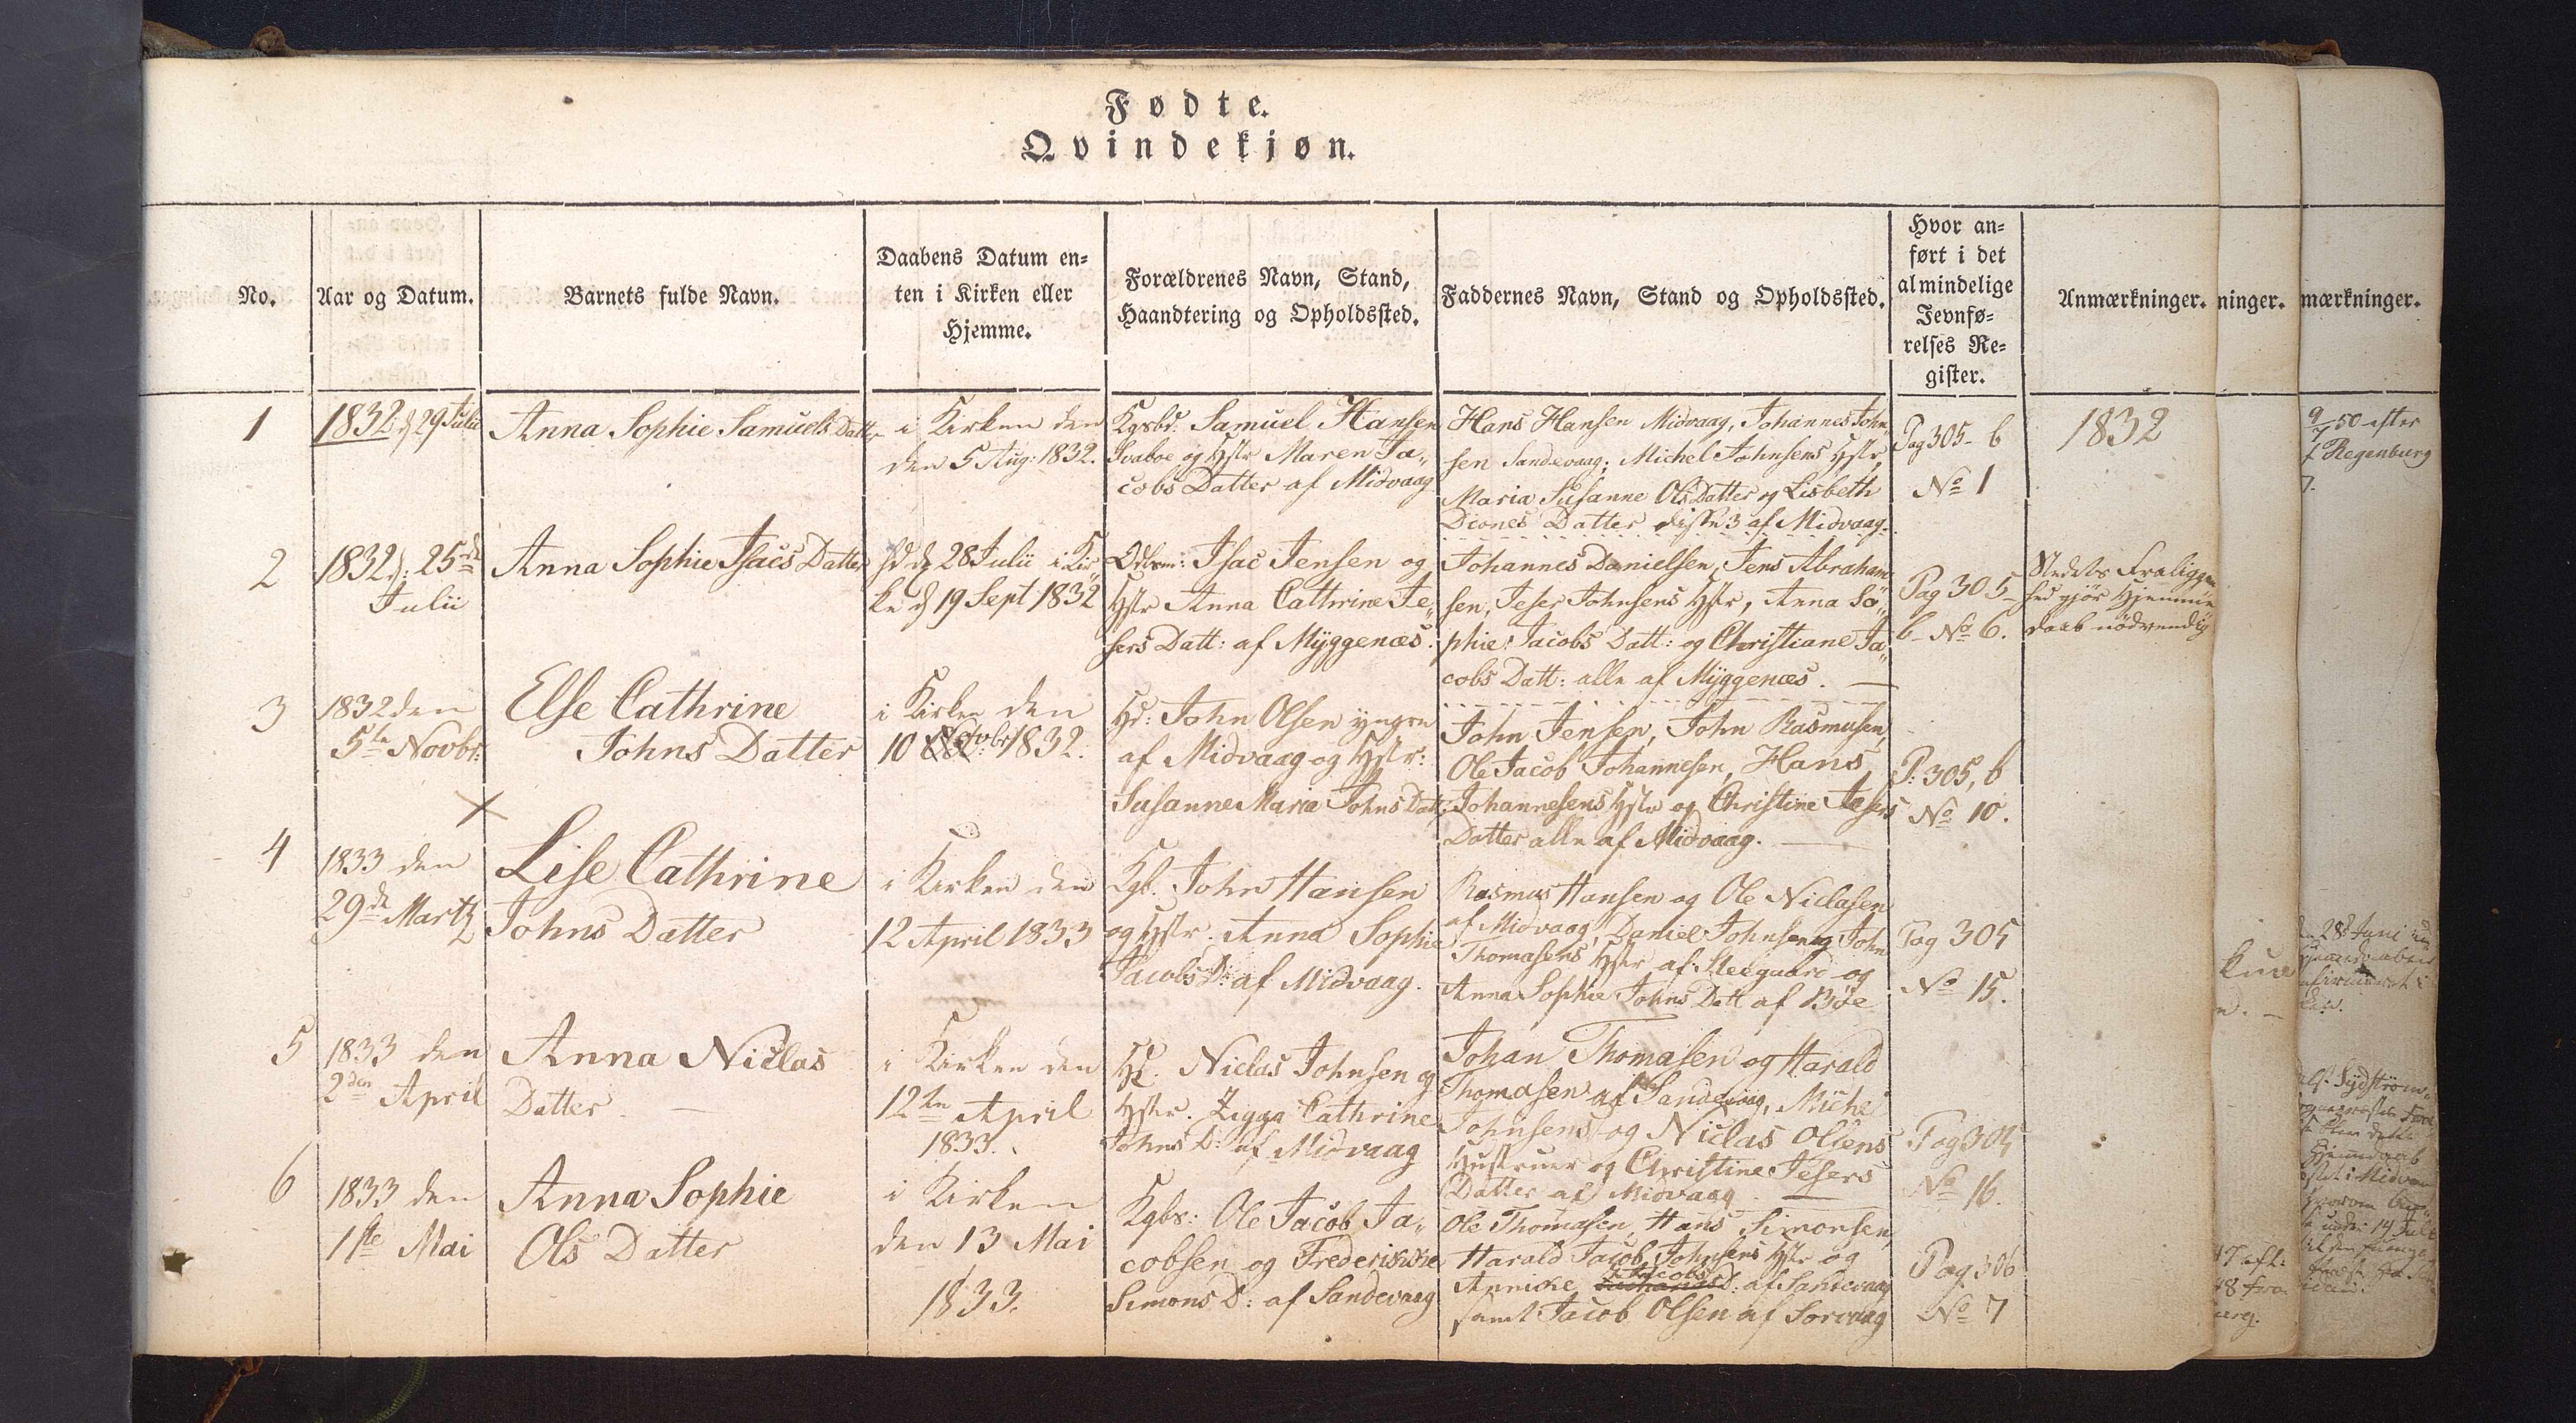 Fødte.
Qvindekjøn.
No.
Aar og Datum.
Barnets fulde Navn.
Daabens Datum en-
ten i Kirken eller
Hjemme.
Forældrenes Navn, Stand,
Haandtering og Opholdssted.
Faddernes Navn, Stand og Opholdssted.
Hvor an-
ført i det
almindelige
Jevnfø-
relses Re-
gister.
Anmærkninger.
ninger.
mærkninger.
1
1832 d 29 Julii
Anna Sophie Samuels Datter
i Kirken den
den 5 Aug: 1832.
Kgsbd. Samuel Hansen
Svaboe og Hstr Maren Ja„
cobs Datter af Midvaag
Hans Hansen Midvaag, Johannes John„
sen Sandevaag; Michel Johnsens Hstr,
Maria Susanne Ols Datter og Lisbeth
Diones Datter disse 3 af Midvaag.
Pag 305- b
No 1
1832
2
1832 d: 25de
Julii
Anna Sophie Isacs Datter
Hd d 28 Julii i Kir„
ke d 19 Sept 1832
Isac Jensen og
Hstr Anna Cathrine Je„
sers Datt: af Myggenæs.
Johannes Danielsen, Jens Abraham„
sen, Jeser Johnsens Hstr, Anna So„
phie Jacobs Datt: og Christiane Ja„
cobs Datt: alle af Myggenæs.
Pag 305-
b- No 6.
Stedets Fraliggen
hed gjør Hjemme
daab nødvendig
3
1832 den
5te Novbr:
Else Cathrine
Johns Datter
i Kirken den
10 Novbr 1832.
Hd: John Olsen yngre
af Midvaag og Hstr:
Susanne Maria Johns Datt:
John Jensen, John Rasmusen,
Ole Jacob Johannesen, Hans
Johannesens Hstr og Christine Jesers
Datter alle af Midvaag.
P: 305, b
No 10.
4
1833 den
29de Martz
Lise Cathrine
Johns Datter
i Kirken den
12 April 1833
Kgb. John Hansen
og Hstr. Anna Sophie
Jacobs D: af Midvaag.
Rasmus Hansen og Ole Niclasen
af Midvaag Daniel Johnsen og John
Thomasens Hstr af Steegaard og
Anna Sophie Johns Datt af Böe
Pag 305
No 15.
5
1833 den
2den April
Anna Niclas
Datter.
i Kirken den
12te April
1833.
Hd. Niclas Johnsen og
Hstr. Zigga Cathrine
Johns D: af Midvaag
Johan Thomasen og Harald
Thomasen af Sandevaag, Michel
Johnsens og Niclas Olsens
Hustruer og Christine Jesers
Datter af Midvaag.
Pag 305
No 16.
6
1833 den
1ste Mai
Anna Sophie
Ols Datter
i Kirken
den 13 Mai
1833.
Kgbr: Ole Jacob Ja„
cobsen og Frederikke
Simons D: af Sandevaag
Ole Thomasen, Hans Simonsen,
Harald Jacob Johnsens Hstr og
Annike Jacobs D: af Sandevaag
samt Jacob Olsen af Sorvaag
Pag 306
No 7
50 efter
Regenburg